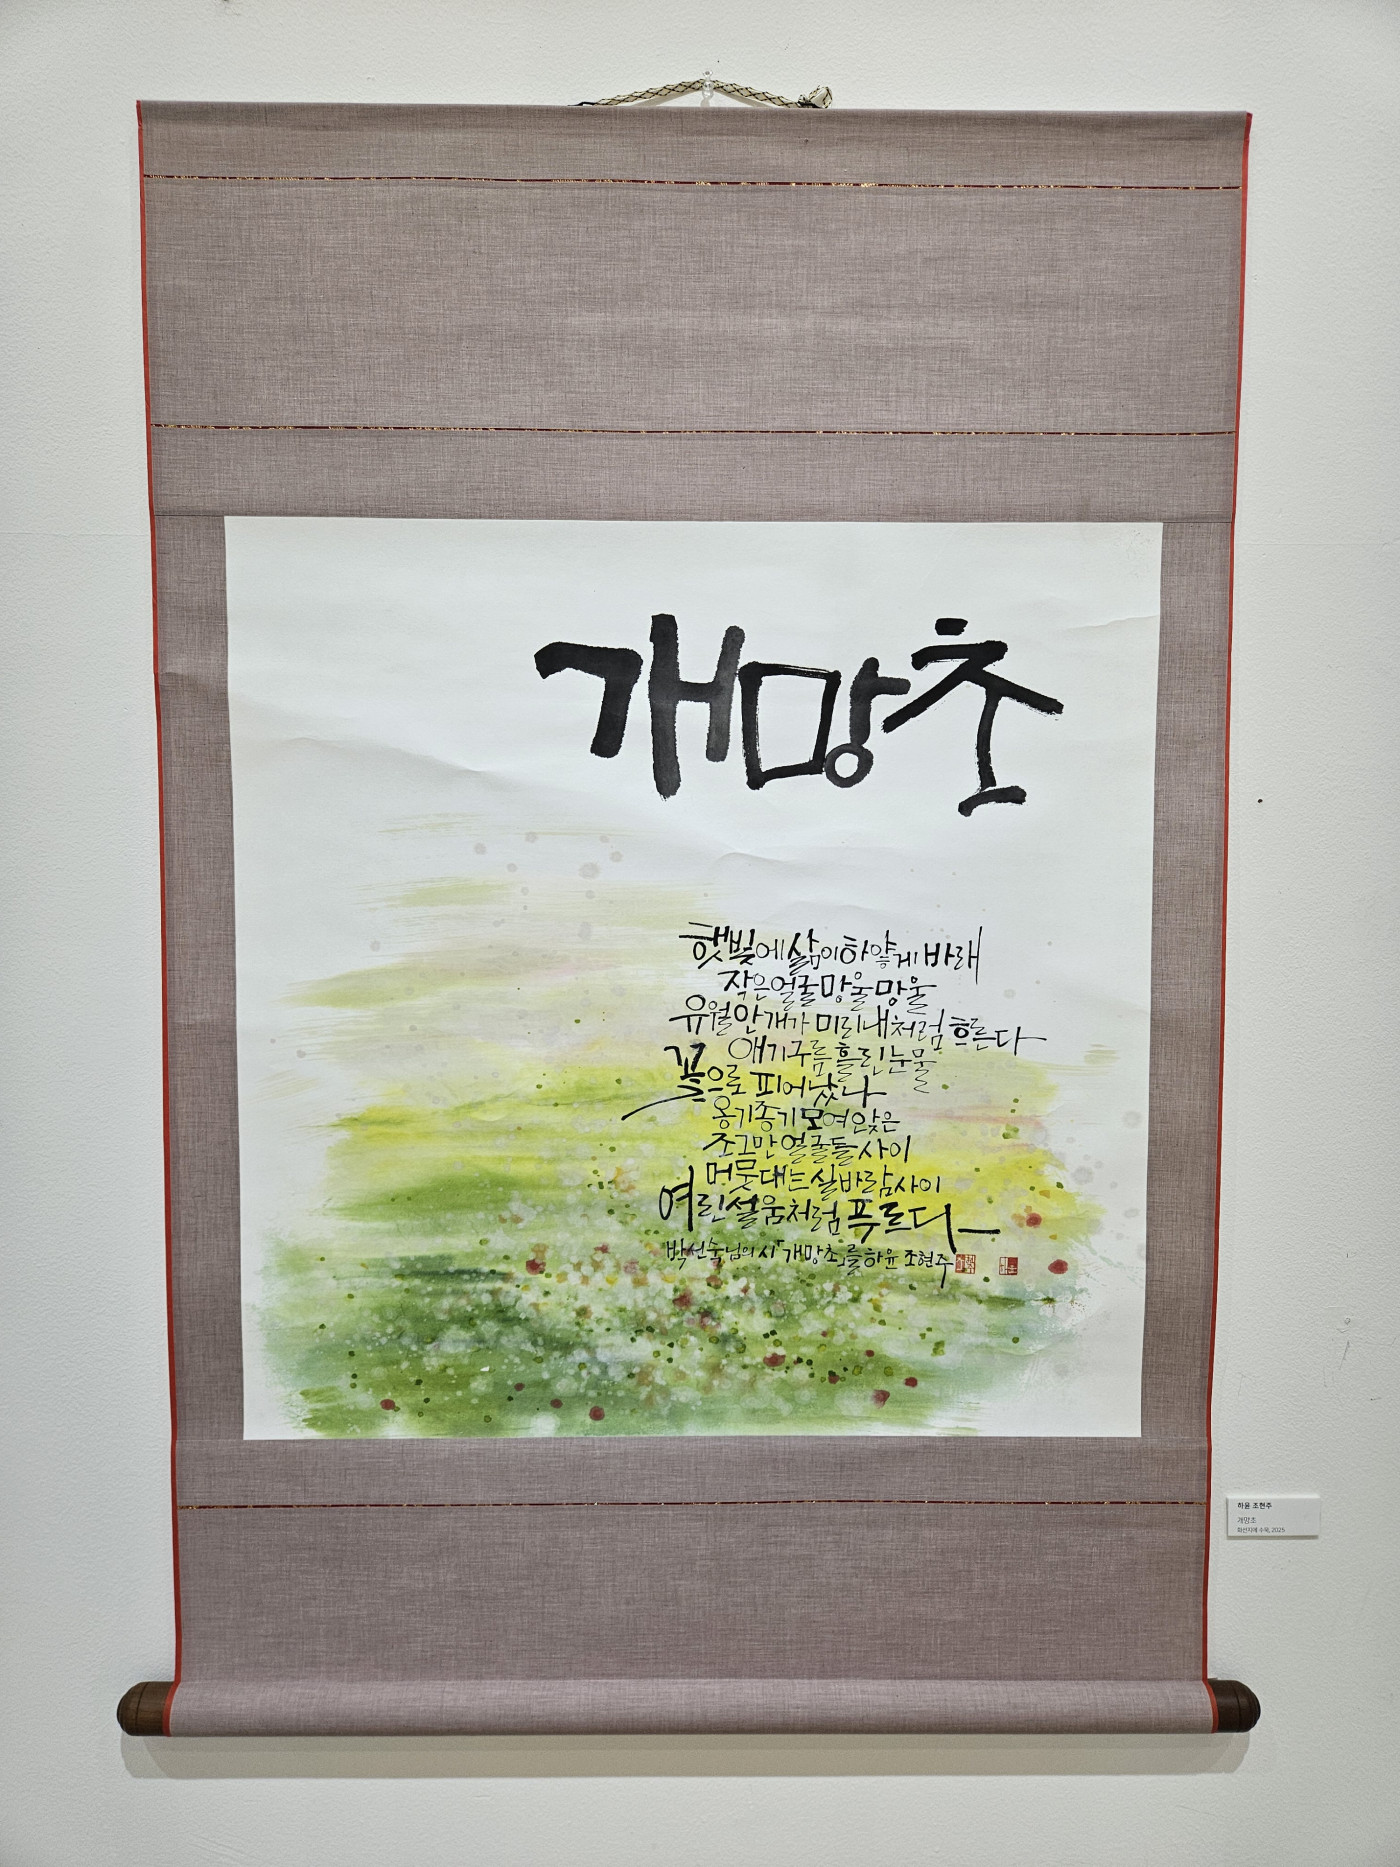 개망초
햇빛에 삶이 하얗게 바래
작은 얼굴 망울망울
유월 안개가 미리내처럼 흐른다
애기구름 흘린 눈물
꽃으로 피어났나
옹기종기 모여앉은
조그만 얼굴들 사이
머뭇대는 실바람 사이
여린 설움처럼 푸르다
박선숙님의 시 「개망초」를 하윤 조현주
하윤 조현주
개망초
화선지에 수묵, 2025